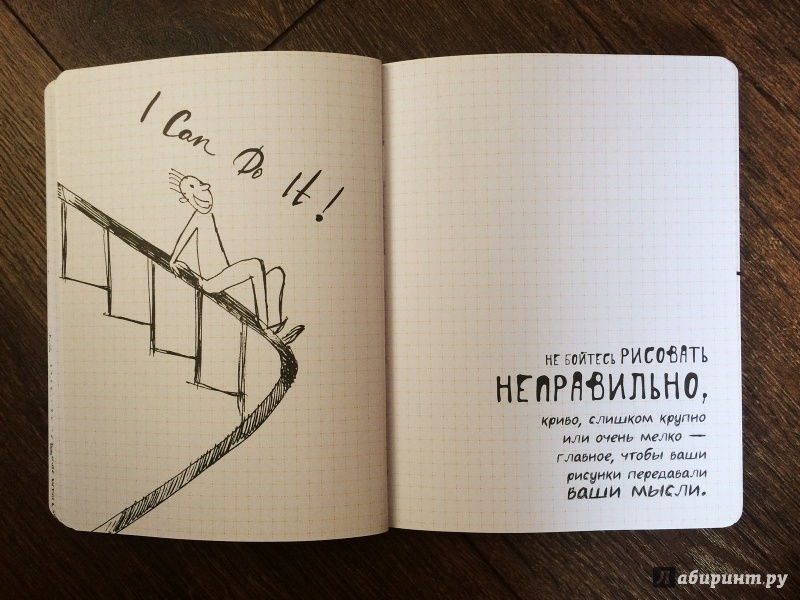 I Can Do It!
НЕ БОЙТЕСЬ РИСОВАТЬ
НЕПРАВИЛЬНО,
криво, слишком крупно
или очень мелко —
главное, чтобы ваши
рисунки передавали
ваши мысли.
Лабиринт.ру